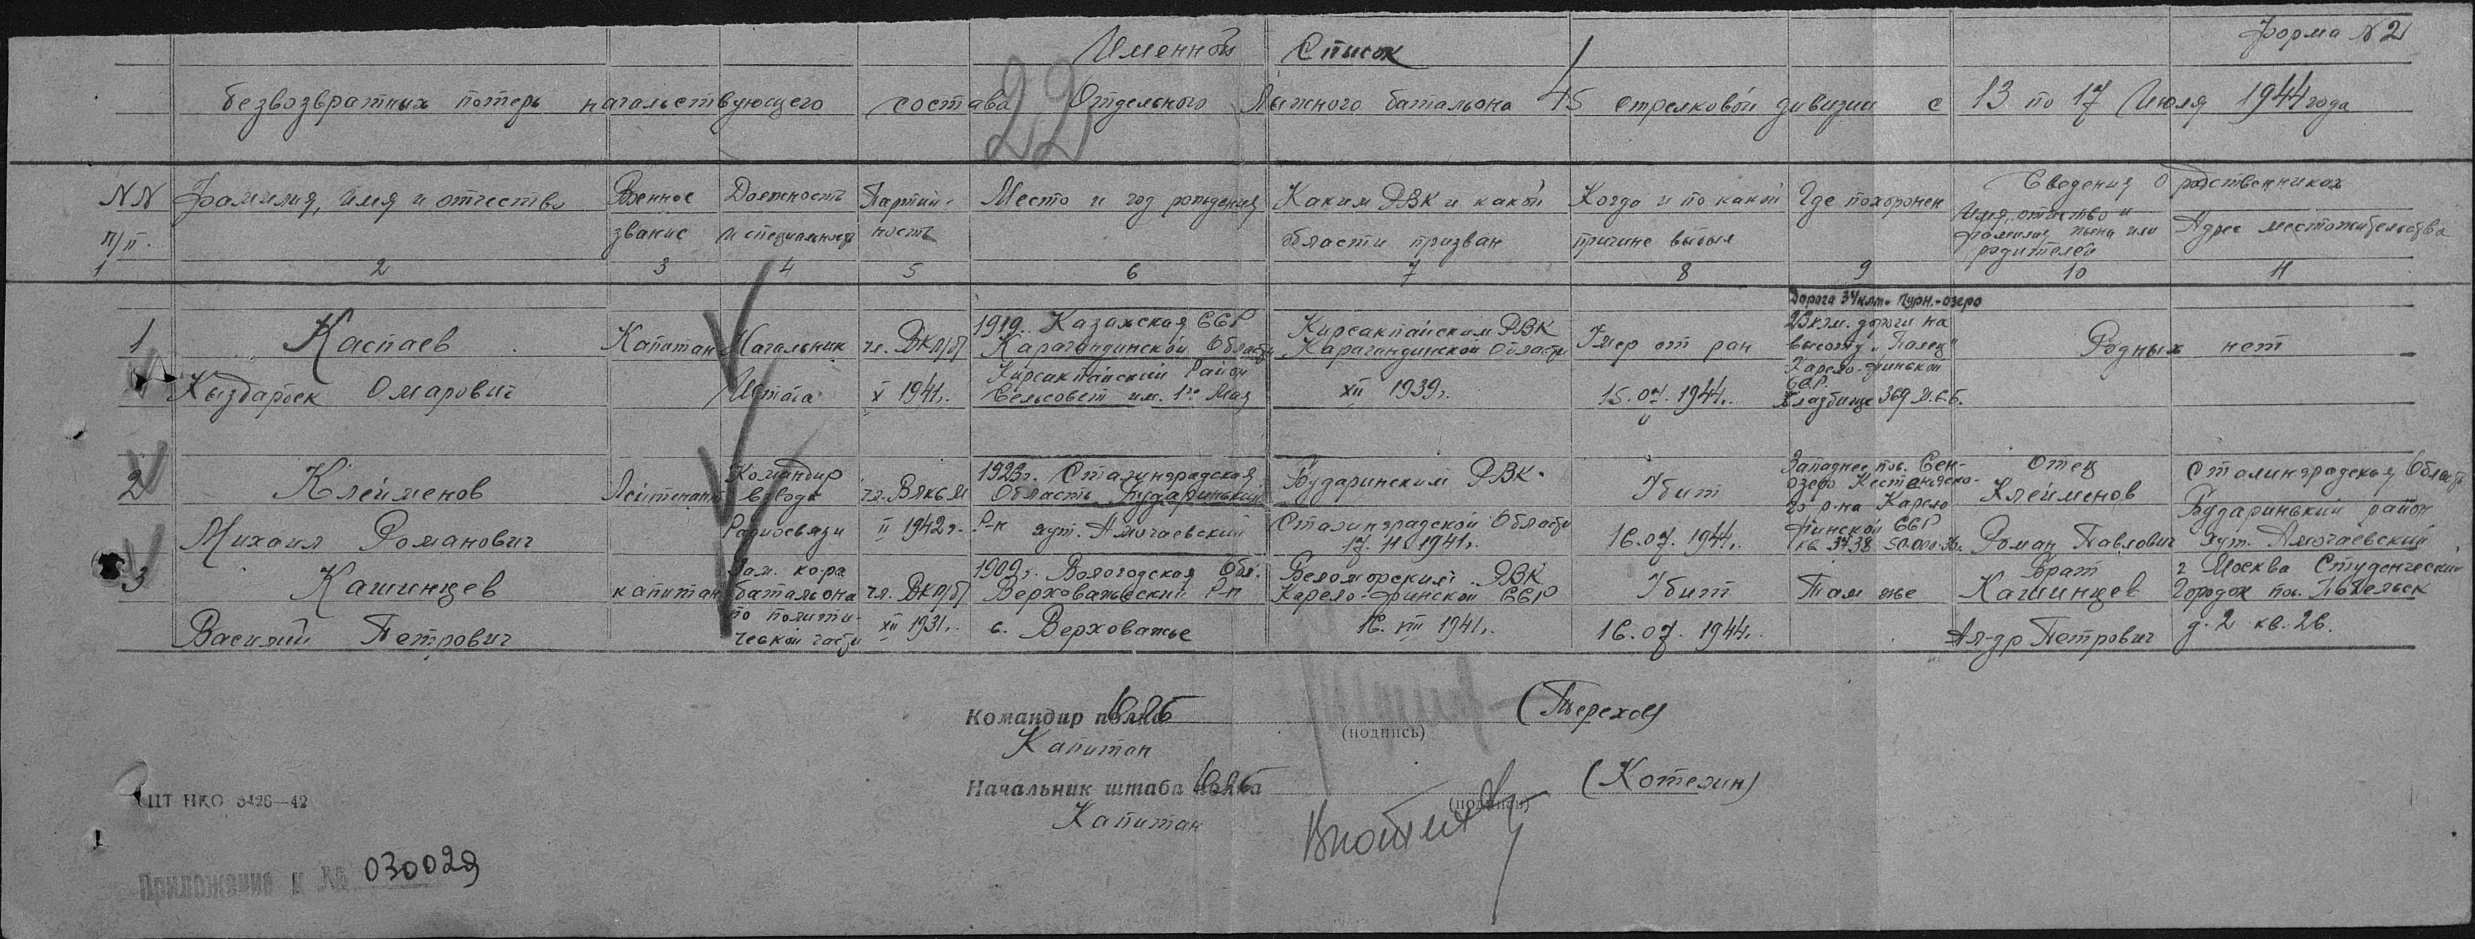 Форма N 2
Именной Список
безвозвратных потерь начальствующего состава Отдельного Лыжного батальона 45 стрелковой дивизии с 13 по 17 Июля 1944 года
22
NN п/п.
Фамилия, имя и отчество
Военное звание
Должность и специальность
Партий-ность
Место и год рождения
Каким РВК и какой области призван
Когда и по какой причине выбыл
Где похоронен
Сведения о родственниках
Имя, отчество и фамилия жены или родителей
Адрес местожительства
1 2 3 4 5 6 7 8 9 10 11
1
Каспаев
Кыздарбек Омарович
Капитан
Начальник
Штаба
чл. ВКП/б/
X 1941г.
1919г. Казахская ССР
Карагандинской Области
Карсакпайский Район
Сельсовет им. 1го Мая
Карсакпайским РВК
Карагандинской Области
XII 1939г.
Умер от ран
15.07.1944г.
Дорога 34 клм.
озеро
23 клм. дороги на
высоту "Палец"
Карело-финской
ССР.
Кладбище 369 М.С.Б.
Родных нет
2
Клейменов
Михаил Романович
Лейтенант
Командир
взвода
Радиосвязи
чл. ВЛКСМ
II 1942г.
1923г. Сталинградская
Область Бударинький
Р-н хут. Амочаевский
Бударинским РВК.
Сталинградской Области
17.11.1941г.
Убит
16.07.1944г.
Западнее пов. Сен-
озеро Кестеньгско-
го р-на Карело
финской ССР
кв. 3438 50.000.
Отец
Клейменов
Роман Павлович
Сталинградская Область
Бударинький район
хут. Амочаевский
3
Кашинцев
Василий Петрович
капитан
Зам. ко-ра
батальона
по полити-
ческой части
чл. ВКП/б/
XII 1931г.
1909г. Вологодская Обл.
Верховажеский Р-н
с. Верховажье
Беломорским РВК
Карело-финской ССР
16. VIII 1941г.
Убит
16.07.1944г.
Там же
Брат
Кашинцев
Ал-др Петрович
г Москва Студенческий
Городок
д. 2 кв. 26.
Командир полка ОЛБ
Капитан
(подпись)
(Терехов)
Начальник штаба полка ОЛБ
Капитан
(подпись)
(Котелин)
ЦТ НКО 3426—42
Приложение к №
030029